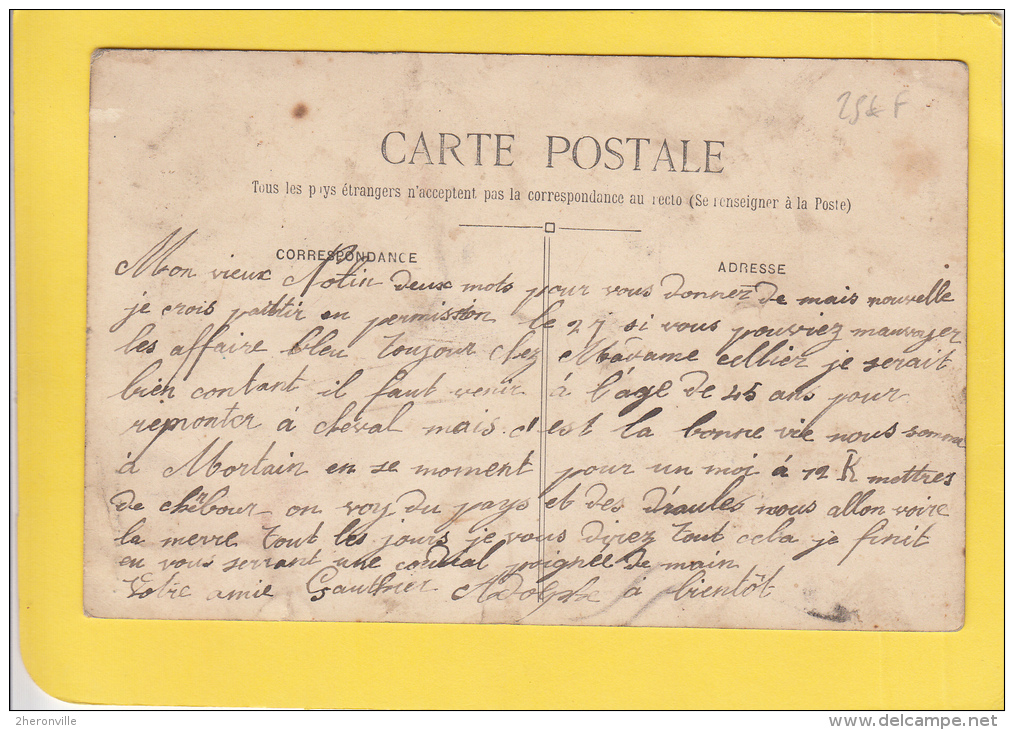 25€ F
CARTE POSTALE
Tous les pays étrangers n'acceptent pas la correspondance au recto (Se renseigner à la Poste)
CORRESPONDANCE
ADRESSE
Mon vieux Potin deux mots pour vous donnez de mais nouvelle
je crois partir en permission le 27 si vous pouviez mauvoyer
les affaire bleu toujour chez Madame cellier je serait
bien contant il faut venir à l'age de 45 ans pour
remonter à cheval mais c'est la bonne vie nous somme
à Mortain en se moment pour un moi à 12 K mettres
de chêbour on voy du pays et des draules nous allon voire
la merre tout les jours je vous direz tout cela je finit
en vous serrant une coudial poignée de main
Votre amie Gauthier Adolphe à bientôt
2heronville
www.delcampe.net